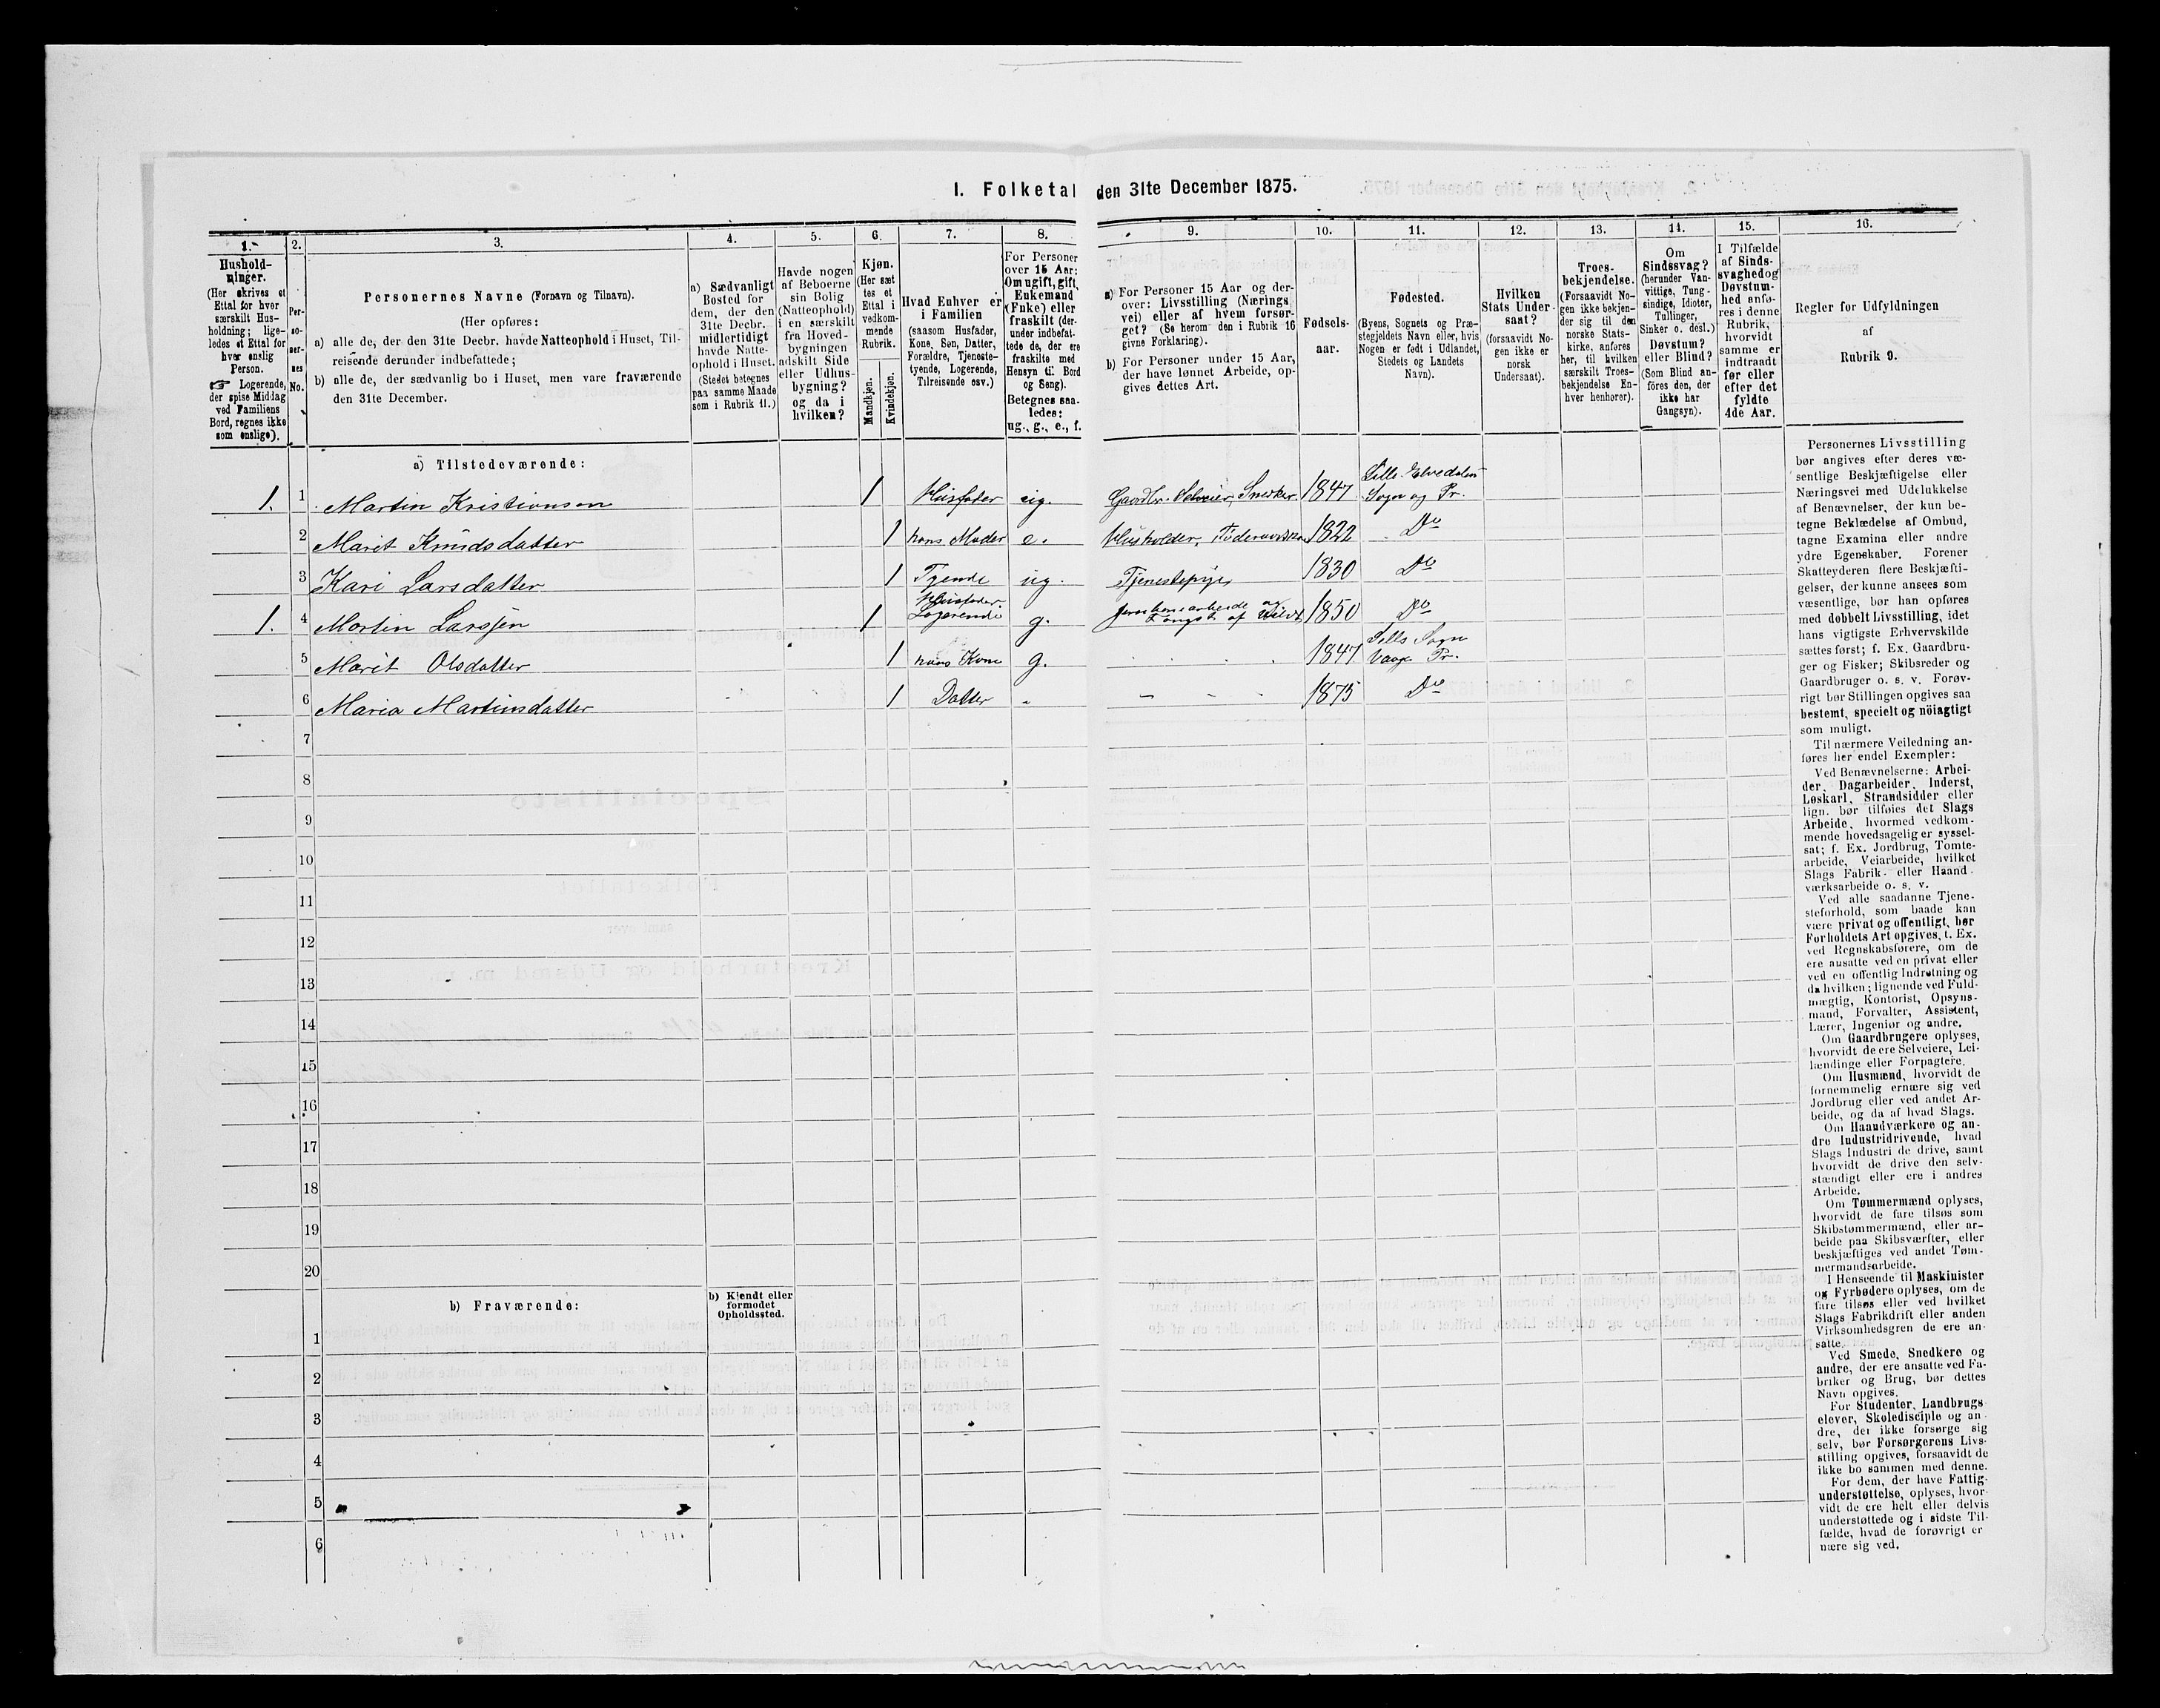 1. Folketal den 31te December 1875.
1. 2. 3. 4. 5. 6. 7. 8. 9. 10. 11. 12. 13. 14. 15. 16.
Hushold-
ninger.
(Her skrives et
Ettal for hver
særskilt Hus-
holdning; lige-
ledes et Ettal for
hver enslig
Person.
☞ Logerende,
der spise Middag
ved Familiens
Bord, regnes ikke
som enslige).
Per-
so-
ner-
nes
No.
Personernes Navne (Fornavn og Tilnavn).
(Her opføres:
a) alle de, der den 31te Decbr. havde Natteophold i Huset, Til-
reisende derunder indbefattede;
b) alle de, der sædvanlig bo i Huset, men vare fraværende
den 31te December.
a) Sædvanligt
Bosted for
dem, der den
31te Decbr.
midlertidigt
havde Natte-
ophold i Huset.
(Stedet betegnes
paa samme Maade
som i Rubrik 11.)
Havde nogen
af Beboerne
sin Bolig
(Natteophold)
i en særskilt
fra Hoved-
bygningen
adskilt Side
eller Udhus-
bygning?
og da i
hvilken?
Kjøn.
(Her sæt
tes et
Ettal i
vedkom-
mende
Rubrik.
Mandkjøn.
Kvindekjøn.
Hvad Enhver er
i Familien
(saasom Husfader,
Kone, Søn, Datter,
Forældre, Tjeneste-
tyende, Logerende,
Tilreisende osv.)
For Personer
over 15 Aar:
Om ugift, gift,
Enkemand
(Enke) eller
fraskilt (der-
under indbefat-
tede de, der ere
fraskilte med
Hensyn til Bord
og Seng).
Betegnes saa-
ledes:
ug., g., e., f.
a) For Personer 15 Aar og der-
over: Livsstilling (Nærings
vei) eller af hvem forsør-
get? (Se herom den i Rubrik 16
givne Forklaring).
b) For Personer under 15 Aar,
der have lønnet Arbeide, op-
gives dettes Art.
Fødsels-
aar.
Fødested.
(Byens, Sognets og Præ-
stegjeldets Navn eller, hvis
Nogen er født i Udlandet,
Stedets og Landets
Navn).
Hvilken
Stats Under-
saat?
(forsaavidt No-
gen ikke er
norsk
Undersaat).
Troes-
bekjendelse.
(Forsaavidt No-
gen ikke bekjen-
der sig til den
norske Stats-
kirke, anføres
her, til hvilken
særskilt Troes-
bekjendelse En-
hver henhører).
Om
Sindssvag?
(herunder Van-
vittige, Tung-
sindige, Idioter,
Tullinger,
Sinker o. desl.)
Døvstum?
eller Blind?
(Som Blind an-
føres den, der
ikke har
Gangsyn).
I Tilfælde
af Sinds-
svaghedog
Døvstum-
hed anfø-
res i denne
Rubrik,
hvorvidt
samme er
indtraadt
før eller
efter det
fyldte
4de Aar.
Regler for Udfyldningen
af
Rubrik 9.
a) Tilstedeværende:
1. 1 Martin Kristiansen 1 Husfader ug. Gaardbr. Selveier, Snedker 1847 Lille Elvedalen Sogn og Pr.
2 Marit Knudsdatter 1 hans Moder e. 1822 Do
3 Kari Larsdatter 1 Tyende ug. Tjenestepige 1830 Do
1. 4 Martin Larsen 1 Husfader Logerende g. 1850 Do
5 Marit Olsdatter 1 hans Kone g. 1847 Sells Sogn Vaage Pr.
6 Maria Martinsdatter 1 Datter - - - - 1875 Do
7
8
9
10
11
12
13
14
15
16
17
18
19
20
b) Fraværende:
b) Kjendt eller
formodet
Opholdssted.
1
2
3
4
5
6
Personernes Livsstilling
bør angives efter deres væ-
sentlige Beskjæftigelse eller
Næringsvei med Udelukkelse
af Benævnelser, der kun be-
tegne Beklædelse af Ombud,
tagne Examina eller andre
ydre Egenskaber. Forener
Skatteyderen flere Beskjæfti-
gelser, der kunne ansees som
væsentlige, bør han opføres
med dobbelt Livsstilling, idet
hans vigtigste Erhvervskilde
sættes først; f. Ex. Gaardbru-
ger og Fisker; Skibsreder og
Gaardbruger o. s. v. Forøv-
rigt bør Stillingen opgives saa
bestemt, specielt og nöiagtigt
som muligt.
Til nærmere Veiledning an-
føres her endel Exempler:
Ved Benævnelserne: Arbei-
der, Dagarbeider, Inderst,
Løskarl, Strandsidder eller
lign. bør tilføies det Slags
Arbeide, hvormed vedkom-
mende hovedsagelig er syssel-
sat; f. Ex. Jordbrug, Tomte-
arbeide, Veiarbeide, hvilket
Slags Fabrik- eller Haand-
værksarbeide o. s. v.
Ved alle saadanne Tjene-
steforhold, som baade kan
være privat og offentligt, bør
Forholdets Art opgives, t. Ex.
ved Regnskabsførere, om de
ere ansatte ved en privat eller
ved en offentlig Indretning og
da hvilken; lignende ved Fuld-
mægtig, Kontorist, Opsyns-
mand, Forvalter, Assistent,
Lærer, Ingeniør og andre.
Om Gaardbrugere oplyses,
hvorvidt de ere Selveiere, Lei-
lændinge eller Forpagtere.
Om Husmænd, hvorvidt de
fornemmelig ernære sig ved
Jordbrug eller ved andet Ar-
beide, og da af hvad Slags.
Om Haandværkere og an-
dre Industridrivende, hvad
Slags Industri de drive, samt
hvorvidt de drive den selv-
stændigt eller ere i andres
Arbeide.
Om Tømmermænd oplyses,
hvorvidt de fare tilsøs som
Skibstømmermænd, eller ar-
beide paa Skibsværfter, eller
beskjæftiges ved andet Tøm-
mermandsarbeide.
I Henseende til Maskinister
og Fyrbødere oplyses, om de
fare tilsøs eller ved hvilket
Slags Fabrikdrift eller anden
Virksomhedsgren de ere an-
satte.
Ved Smede, Snedkere og
andre, der ere ansatte ved Fa-
briker og Brug, bør dettes
Navn opgives.
For Studenter, Landbrugs-
elever, Skoledisciple og an-
dre, der ikke forsørge sig
selv, bør Forsørgerens Livs-
stilling opgives, forsaavidt de
ikke bo sammen med denne.
For dem, der have Fattig-
understøttelse, oplyses, hvor-
vidt de ere helt eller delvis
understøttede og i sidste Til-
fælde, hvad de forøvrigt er
nære sig ved.